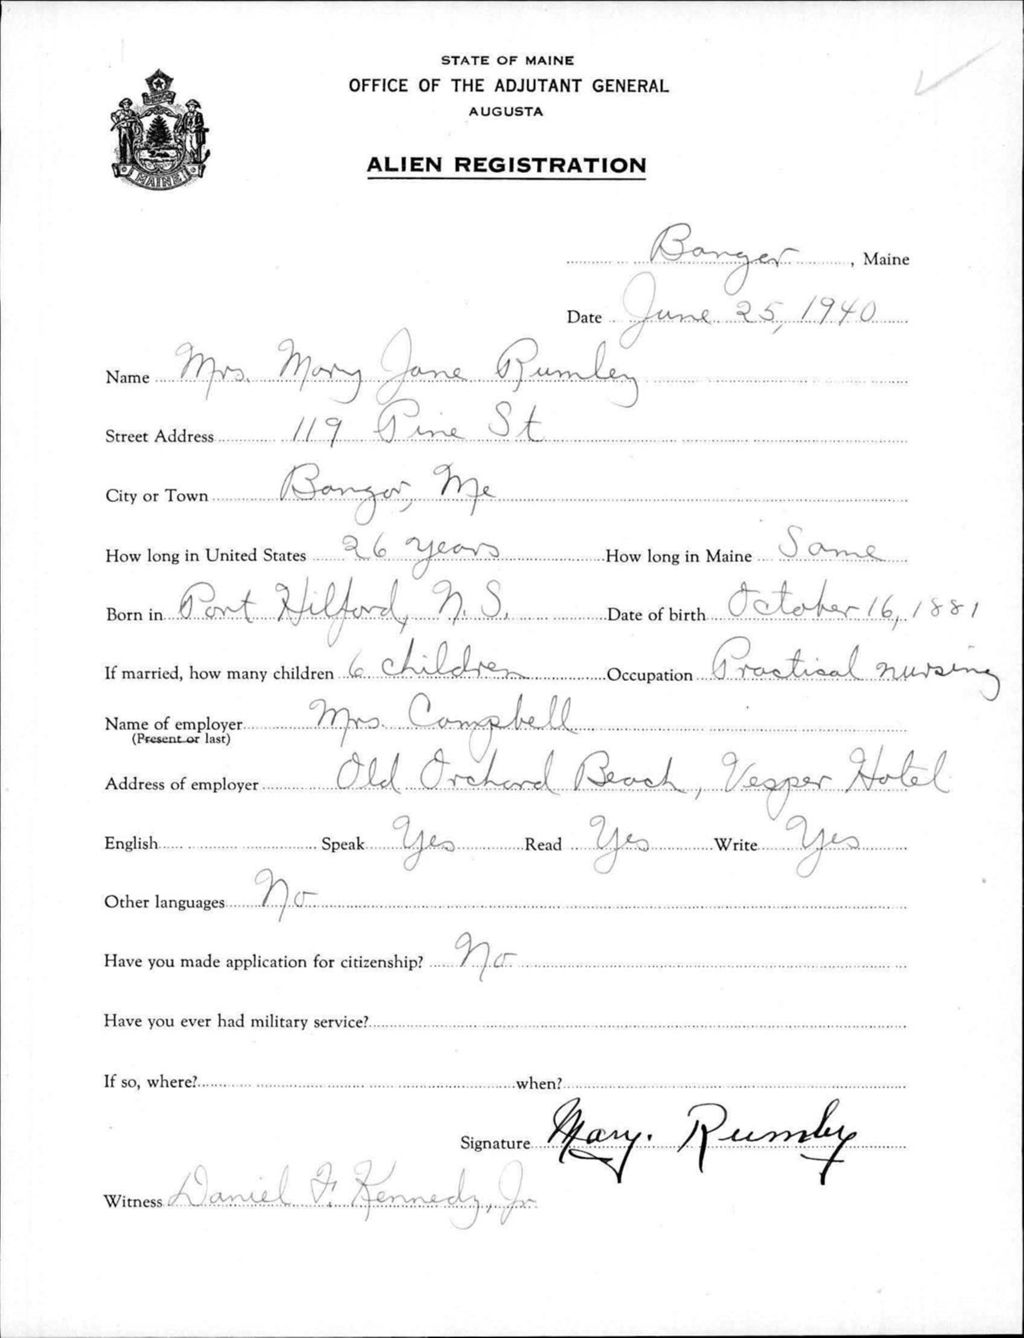 STATE OF MAINE
OFFICE OF THE ADJUTANT GENERAL
AUGUSTA
MAINE
ALIEN REGISTRATION
Bangor, Maine
Date June 25, 1940
Name Mrs. Mary Jane Rumley
Street Address 119 Pine St
City or Town Bangor, Me
How long in United States 26 years How long in Maine Same
Born in Port Hilford, N.S. Date of birth October 16, 1881
If married, how many children 6 children Occupation Practical nursing
Name of employer Mrs. Campbell
(Present or last)
Address of employer Old Orchard Beach, Vesper Hotel
English Speak Yes Read Yes Write Yes
Other languages No
Have you made application for citizenship? No
Have you ever had military service?
If so, where? when?
Signature Mary. Rumley
Witness Daniel F. Kennedy, Jr.